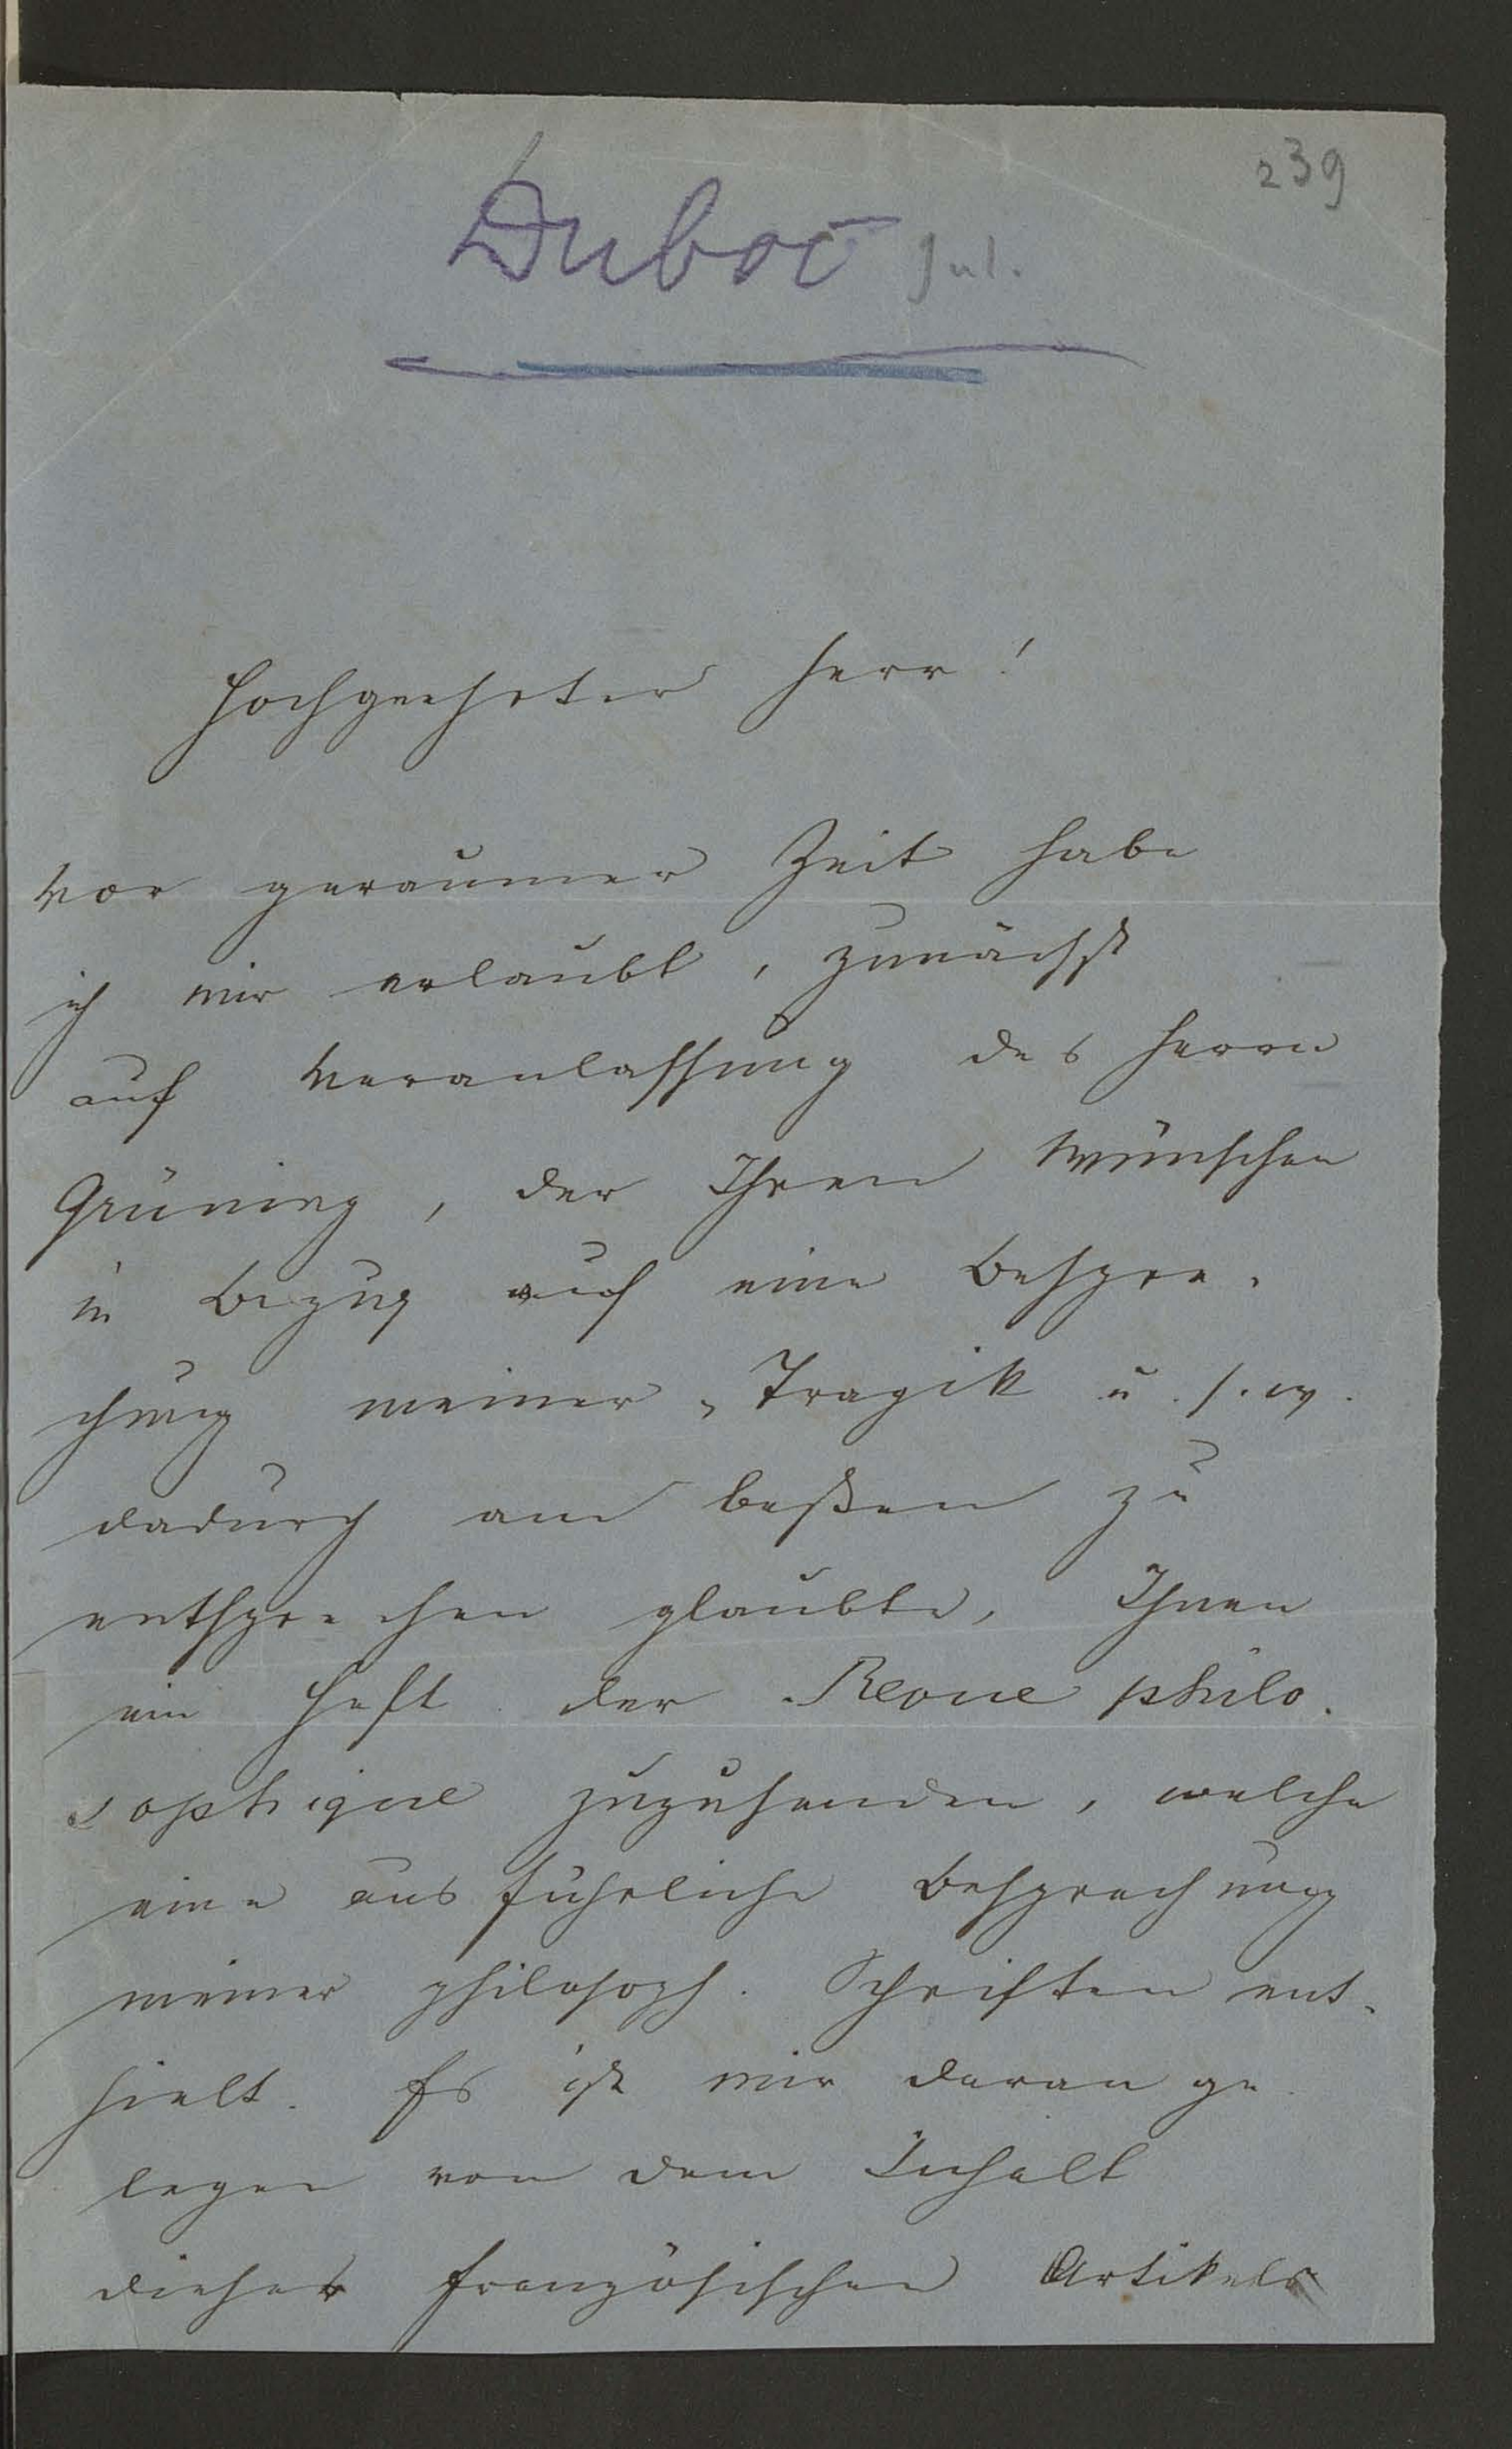 239
Duboc Jul.
Hochgeehrter Herr!
Vor geraumer Zeit habe
ich mir erlaubt, zunächst
auf Veranlassung des Herrn
Grüning, der Ihren Wünschen
in Bezug auf eine Bespre-
chung meiner „Tragik u. s. w.
dadurch am besten zu
entsprechen glaubte, Ihnen
ein Heft der Revue philo-
sophique zuzusenden, welche
eine ausführliche Besprechung
meiner philosoph. Schriften ent-
hielt. Es ist mir daran ge-
legen von dem Inhalt
dieses französischen Artikels